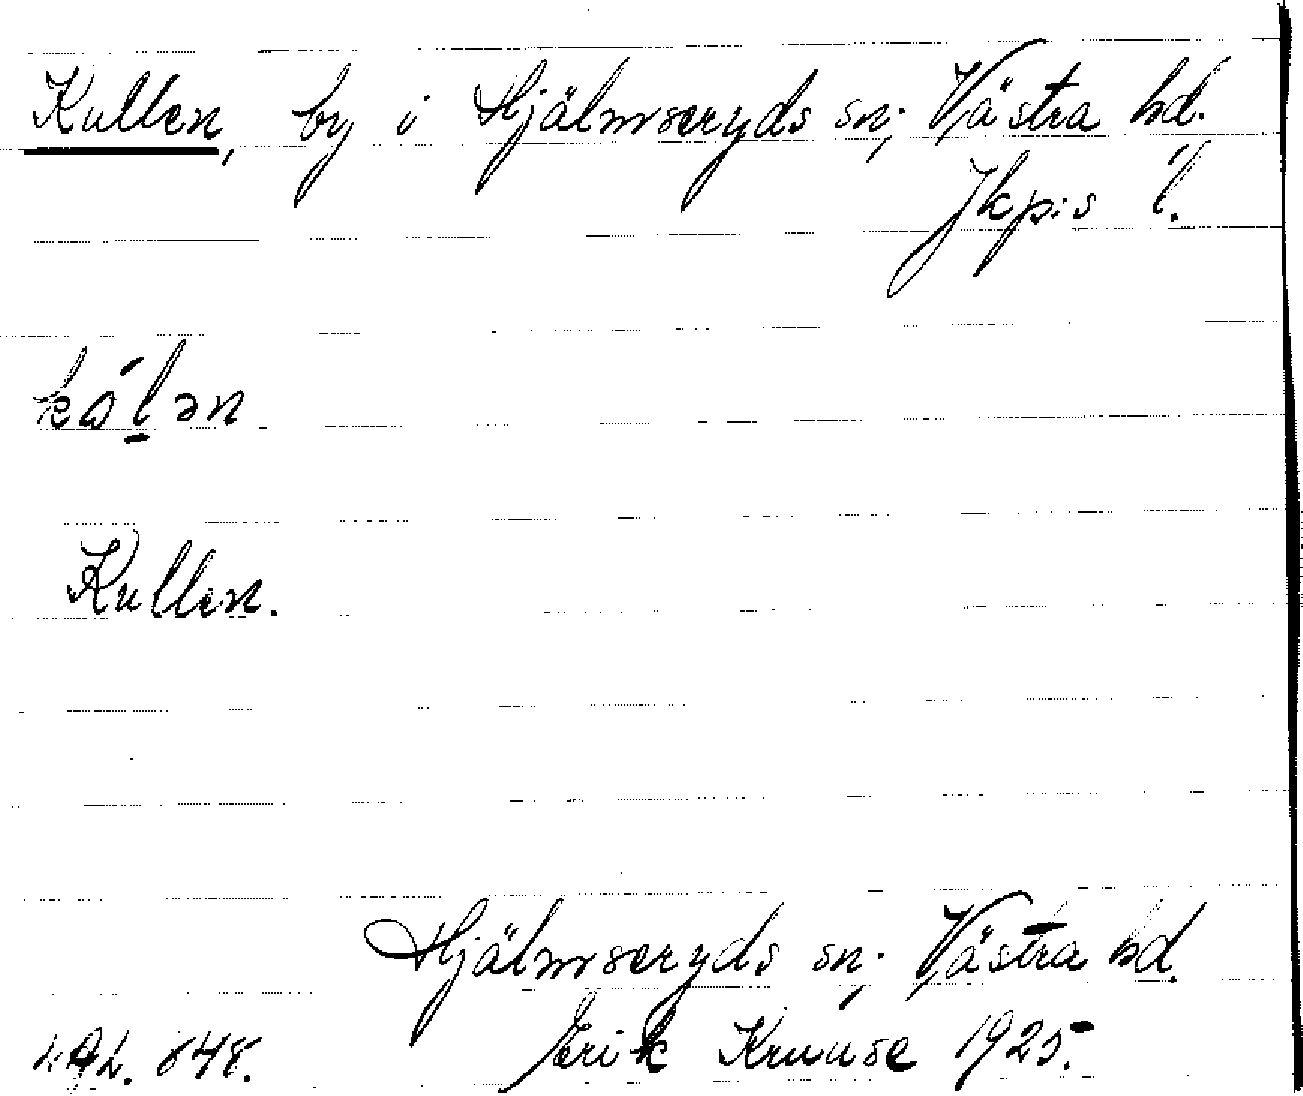 Kullen, by i Hjälmseryds sn; Västra hd.
Jkp:s l.
Kullen.
Hjälmseryds sn; Västra hd.
Erik Kruuse 1925.